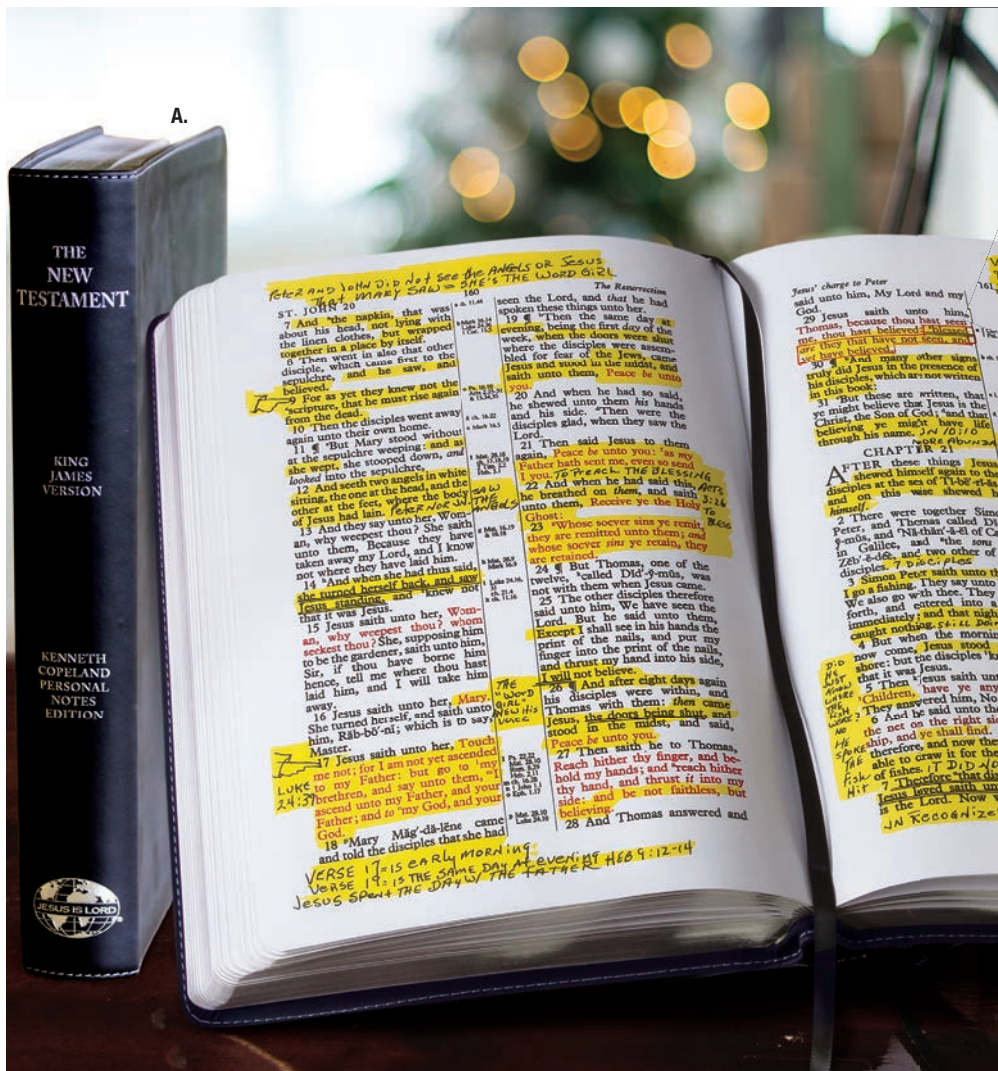 A.
THE
NEW
TESTAMENT
KING
JAMES
VERSION
KENNETH
COPELAND
PERSONAL
NOTES
EDITION
JESUS IS LORD
PETER AND JOHN DID NOT SEE the ANGELS OR JESUS
THAT MARY SAW = SHE'S THE WORD GIRL
160
The Resurrection
ST. JOHN 20
7 And the napkin, that was
about his head, not lying with
the linen clothes, but wrapped
together in a place by itself.
8 Then went in also that other
disciple, which came first to the
sepulchre, and he saw, and
believed.
9 For as yet they knew not the
scripture, that he must rise again
from the dead.
10 Then the disciples went away
again unto their own home.
11 ¶ But Mary stood without
at the sepulchre weeping: and as
she wept, she stooped down, and
looked into the sepulchre,
12 And seeth two angels in white
sitting, the one at the head, and the
other at the feet, where the body
of Jesus had lain.
13 And they say unto her, Wom-
an, why weepest thou? She saith
unto them, Because they have
taken away my Lord, and I know
not where they have laid him.
14 And when she had thus said,
she turned herself back, and saw
Jesus standing, and knew not
that it was Jesus.
15 Jesus saith unto her, Wom-
an, why weepest thou? whom
seekest thou? She, supposing him
to be the gardener, saith unto him,
Sir, if thou have borne him
hence, tell me where thou hast
laid him, and I will take him
away.
16 Jesus saith unto her, Mary.
She turned herself, and saith unto
him, Răb-bō'-nī; which is to say,
Master.
17 Jesus saith unto her, Touch
me not; for I am not yet ascended
to my Father: but go to my
brethren, and say unto them, I
ascend unto my Father, and your
Father; and to my God, and your
God.
18 Mary Măg'-dā-lēne came
and told the disciples that she had
LUKE
24:39
VERSE 17 = IS EARLY MORNING:
VERSE 19 = IS THE SAME DAY AT EVENING
JESUS SPENT THE DAY W/ THE FATHER HEB 9:12-14
seen the Lord, and that he had
spoken these things unto her.
19 ¶ Then the same day at
evening, being the first day of the
week, when the doors were shut
where the disciples were assem-
bled for fear of the Jews, came
Jesus and stood in the midst, and
saith unto them, Peace be unto
you.
20 And when he had so said,
he shewed unto them his hands
and his side. Then were the
disciples glad, when they saw the
Lord.
21 Then said Jesus to them
again, Peace be unto you: as my
Father hath sent me, even so send
I you. TO PREACH THE BLESSING
22 And when he had said this,
he breathed on them, and saith
unto them, Receive ye the Holy
Ghost:
23 Whose soever sins ye remit,
they are remitted unto them; and
whose soever sins ye retain, they
are retained.
ACTS
3:26
TO
BLESS
24 ¶ But Thomas, one of the
twelve, called Did'-ȳ-mŭs, was
not with them when Jesus came.
25 The other disciples therefore
said unto him, We have seen the
Lord. But he said unto them,
Except I shall see in his hands the
print of the nails, and put my
finger into the print of the nails,
and thrust my hand into his side,
I will not believe.
26 ¶ And after eight days again
his disciples were within, and
Thomas with them: then came
Jesus, the doors being shut, and
stood in the midst, and said,
Peace be unto you.
27 Then said he to Thomas,
Reach hither thy finger, and be-
hold my hands; and reach hither
thy hand, and thrust it into my
side: and be not faithless, but
believing.
28 And Thomas answered and
THE
"WORD
GIRL"
HIS
VOICE
Jesus' charge to Peter
161
said unto him, My Lord and my
God.
29 Jesus saith unto him,
Thomas, because thou hast seen
me, thou hast believed: blessed
are they that have not seen, and
yet have believed.
30 ¶ And many other signs
truly did Jesus in the presence of
his disciples, which are not written
in this book:
31 But these are written, that
ye might believe that Jesus is the
Christ, the Son of God; and that
believing ye might have life
through his name. JN 10:10
MORE
CHAPTER 21
AFTER these things Jesus
shewed himself again to the
disciples at the sea of
and on this wise shewed
himself.
2 There were together Simon
Peter, and Thomas called
and of
in Galilee, and the sons
and two other of
disciples. 7 DISCIPLES
3 Simon Peter saith unto
I go a fishing. They say unto
We also go with thee. They
forth, and entered into a
immediately; and that night
caught nothing. STILL
4 But when the morning
now come, Jesus stood
shore: but the disciples
that it was Jesus.
5 Then Jesus saith unto
Children, have ye any
They answered him, No.
6 And he said unto
the net on the right
ship, and ye shall find.
therefore, and now
able to draw it for
of fishes. IT DID NOT
7 Therefore that
Jesus loved saith
is the Lord. Now
RECOGNIZE
DID
HE
JUST
KNOW
WHERE
THE
FISH
WERE?
NO
HE
SPOKE
THE
FISH
HIT